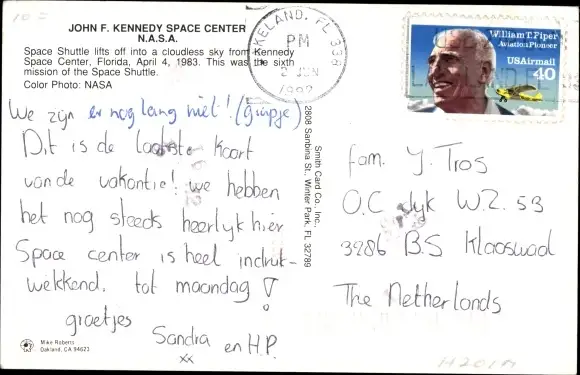 10=
JOHN F. KENNEDY SPACE CENTER
N.A.S.A.
Space Shuttle lifts off into a cloudless sky from Kennedy
Space Center, Florida, April 4, 1983. This was the sixth
mission of the Space Shuttle.
Color Photo: NASA
We zijn er nog lang niet! (grapje)
Dit is de laatste kaart
van de vakantie! we hebben
het nog steeds heerlyk hier
Space center is heel indruk-
wekkend. tot maandag!
groetjes
Sandra en H.P.
xx
Mike Roberts
Oakland, CA 94623
Smith Card Co., Inc.
2808 Sanbina St., Winter Park, FL 32789
LAKELAND, FL 338
PM
2 JUN
1992
William T. Piper
Aviation Pioneer
USAirmail
40
fam. Y. Tros
O.C dyk W.Z. 53
3286 B.S Klaaswaal
The Netherlands
H201M